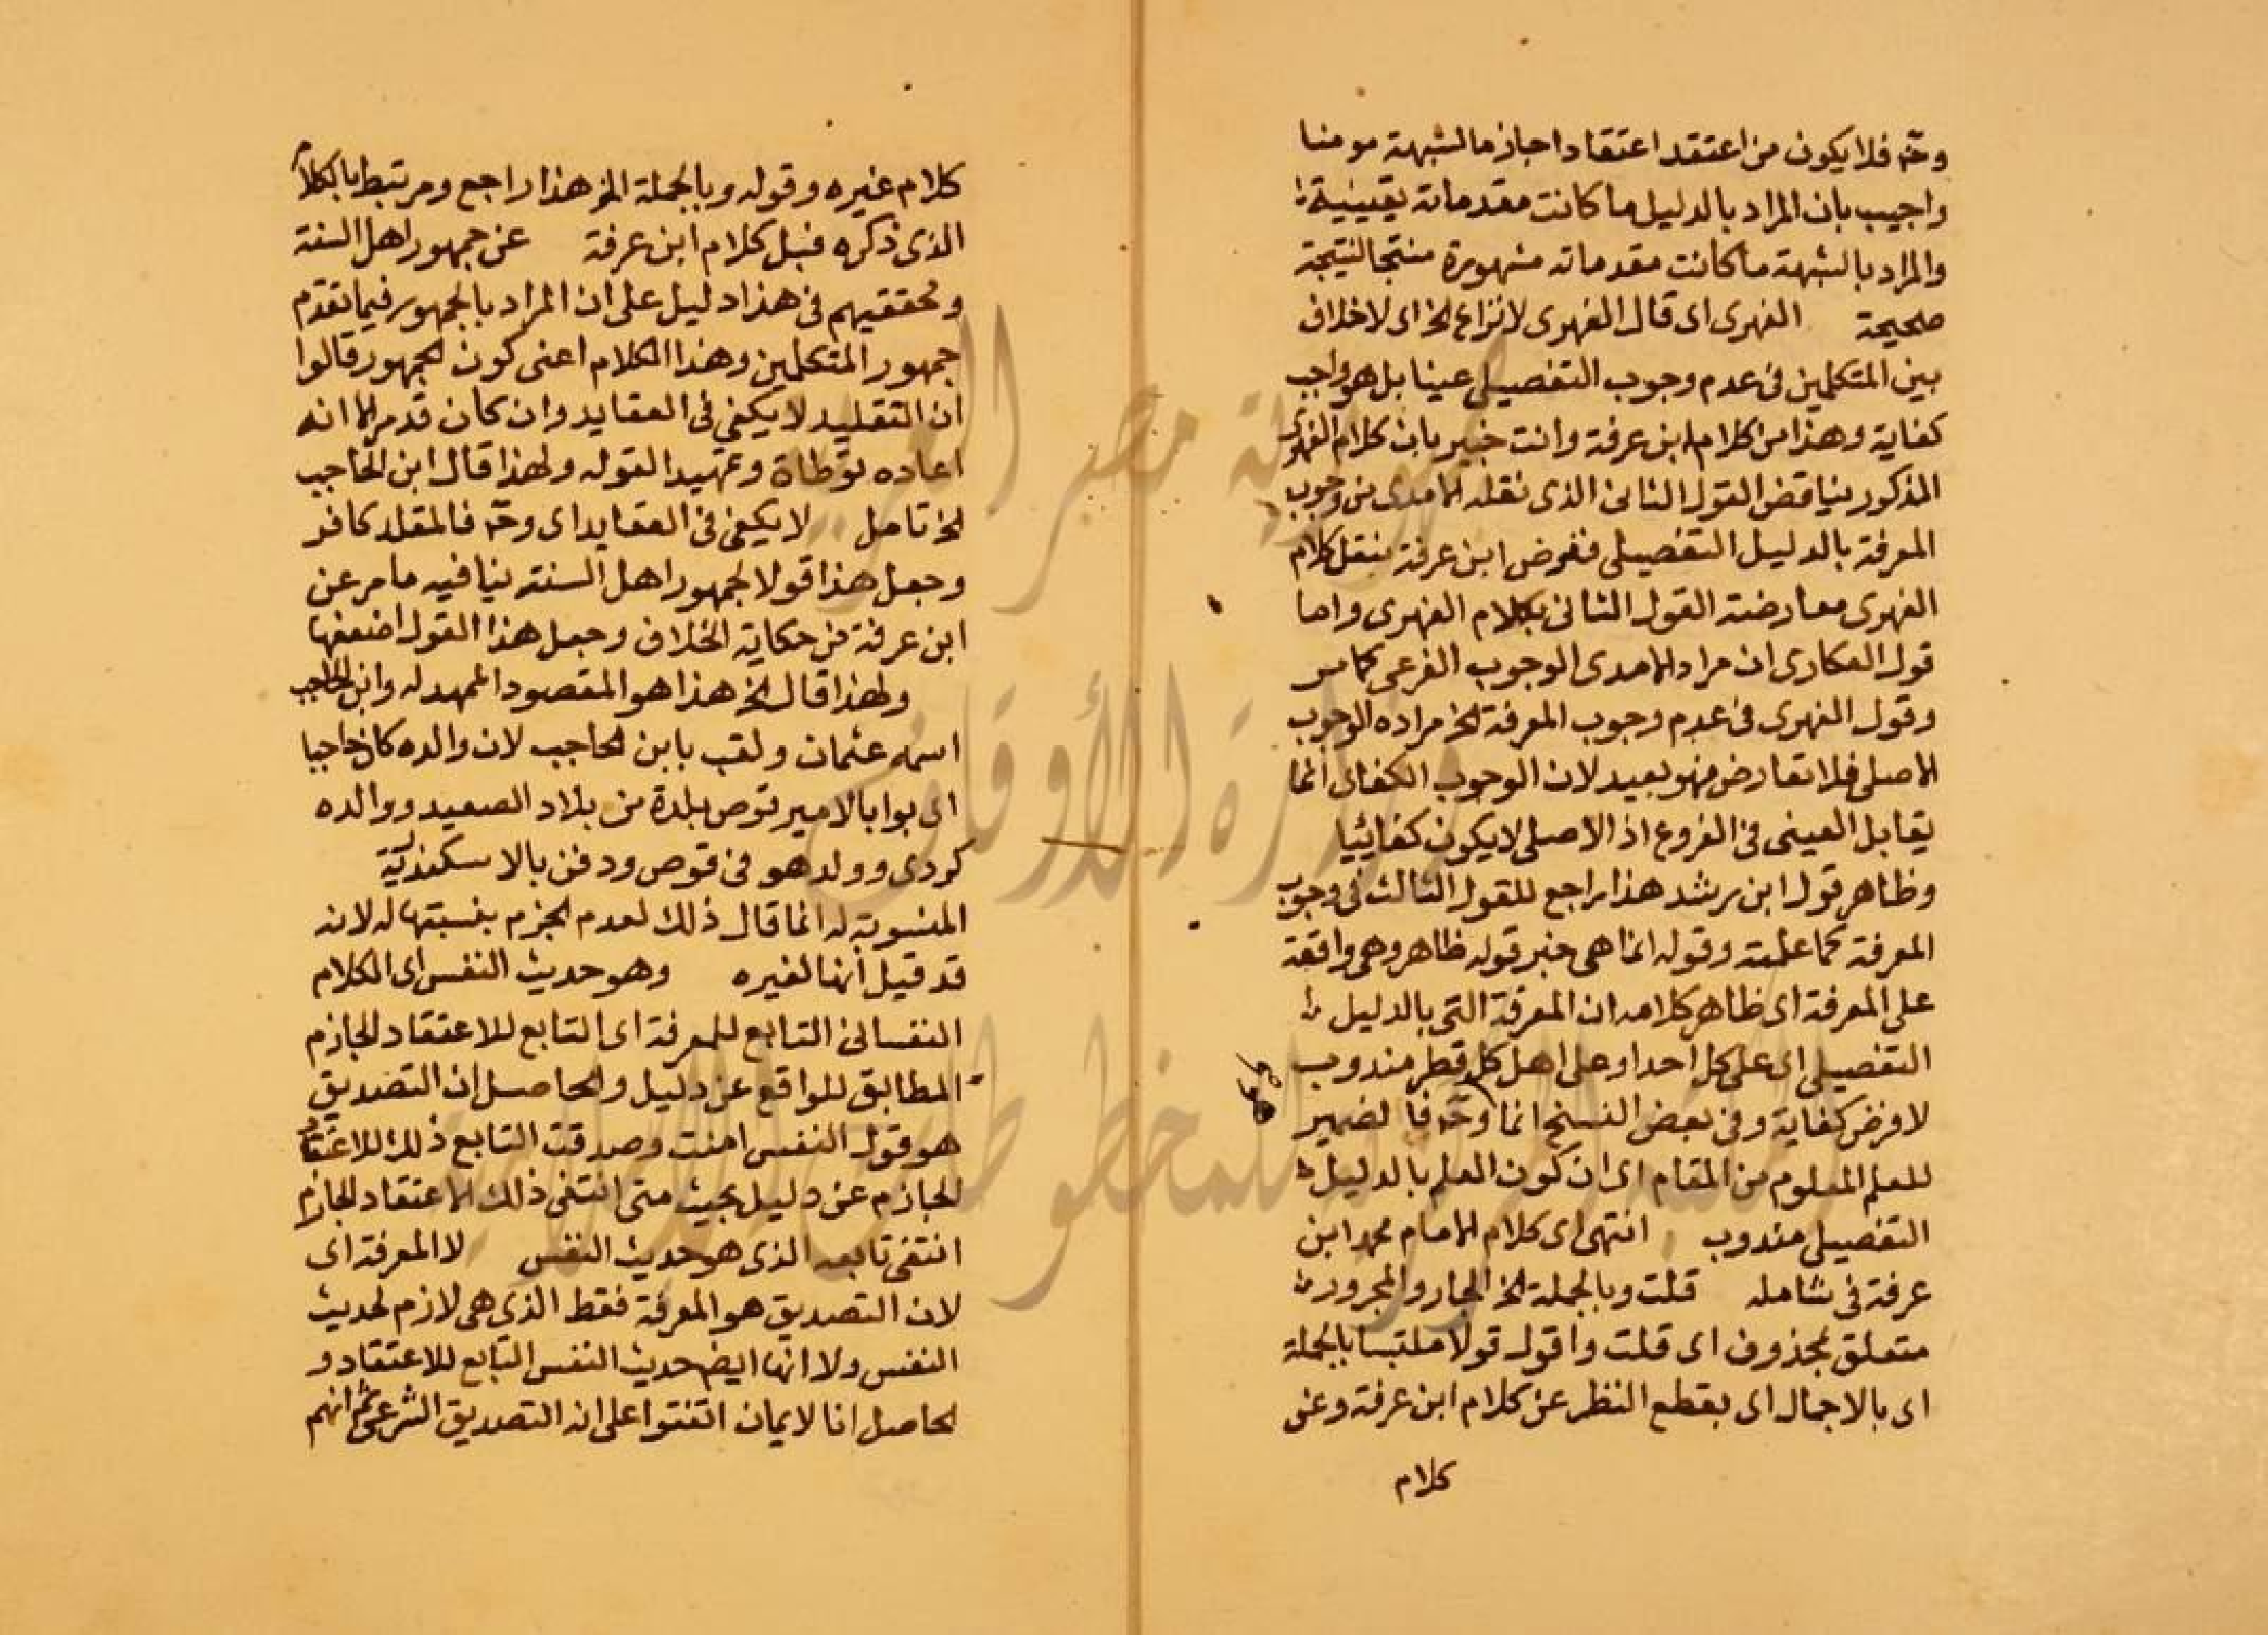 وحّ فلا يكون من اعتقد اعتقادا جازما لشبهة مومنا
واجيب بان المراد بالدليل ما كانت مقدماته يقينية
والمراد بالشبهة ما كانت مقدماته مشهورة منتجا لنتيجة
صحيحة الفهرى اى قال الفهرى لا نزاع الخ اى لا خلاف
بين المتكلمين فى عدم وجوب التفصيلى عينا بل هو واجب
كفاية وهذا من كلام ابن عرفة وانت خبير بان كلام الفهرى
المذكور ينياقض القول الثانى الذى نقله الامدى من وجوب
المعرفة بالدليل التفصيلى فغرض ابن عرفة بنقل كلام
الفهرى معارضة القول الثانى بكلام الفهرى واما
قول العكارى ان مراد الامدى الوجوب الفرعى كما مر
وقول الفهرى فى عدم وجوب المعرفة الخ مراده الوجوب
الاصلى فلا تعارض فهو بعيد لان الوجوب الكفاى انما
يقابل العينى فى الفروع اذ الاصلى لا يكون كفائيا
وظاهر قول ابن رشد هذا راجع للقول الثالث فى وجوب
المعرفة كما علمته وقوله انما هى خبر قوله ظاهر وهى واقعة
على المعرفة اى ظاهر كلامه ان المعرفة التى بالدليل
التفصيلى اى على كل احد او على اهل كل قطر مندوب
لا فرض كفاية وفى بعض النسخ انما وحّ فا لضمير
للعلم المعلوم من المقام اى ان كون العلم بالدليل
التفصيلى مندوب انتهى اى كلام الامام محمد ابن
عرفة فى شامله قلت وبالجملة الخ الجار والمجرور
متعلق بمحذوف اى قلت واقول قولا ملتبسا بالجملة
اى بالاجمال اى بقطع النظر عن كلام ابن عرفة وعن
كلام
كلام غيره وقوله وبالجملة الخ هذا راجع ومرتبط بالكلام
الذى ذكره قبل كلام ابن عرفة عن جمهور اهل السنة
ومحققيهم فى هذا دليل على ان المراد بالجمهور فيما تقدم
جمهور المتكلمين وهذا الكلام اعنى كون الجمهور قالوا
ان التقليد لا يكفى فى العقايد وان كان قدمر الا انه
اعاده توطاة وتمهيدا لقوله ولهذا قال ابن الحاجب
الخ تامل لا يكفى فى العقايد اى وحّ فالمقلد كافر
وجعل هذا قولا لجمهور اهل السنة ينيافيه ما مر عن
ابن عرفة من حكاية الخلاف وجعل هذا القول اضعفها
ولهذا قال الخ هذا هو المقصود الممهد له وابن الحاجب
اسمه عثمان ولقب بابن الحاجب لان والده كان حاجبا
اى بوابا لامير قوص بلدة من بلاد الصعيد ووالده
كردى وولد هو فى قوص ودفن بالاسكندرية
المنسوبة له انما قال ذلك لعدم الجزم بنسبتها له لانه
قد قيل انها لغيره وهو حديث النفس اى الكلام
النفسانى التابع للمعرفة اى التابع للاعتقاد الجازم
المطابق للواقع عن دليل والحاصل ان التصديق
هو قول النفس امنت وصدقت التابع ذلك للاعتقاد
الجازم عن دليل بحيث متى انتفى ذلك الاعتقاد الجازم
انتفى تابعه الذى هو حديث النفس لا المعرفة اى
لان التصديق هو المعرفة فقط الذى هى لازم لحديث
النفس ولا انها ايضا حديث النفس التابع للاعتقاد و
الحاصل انا لايمان اتفقوا على انه التصديق الشرعى ثم انهم